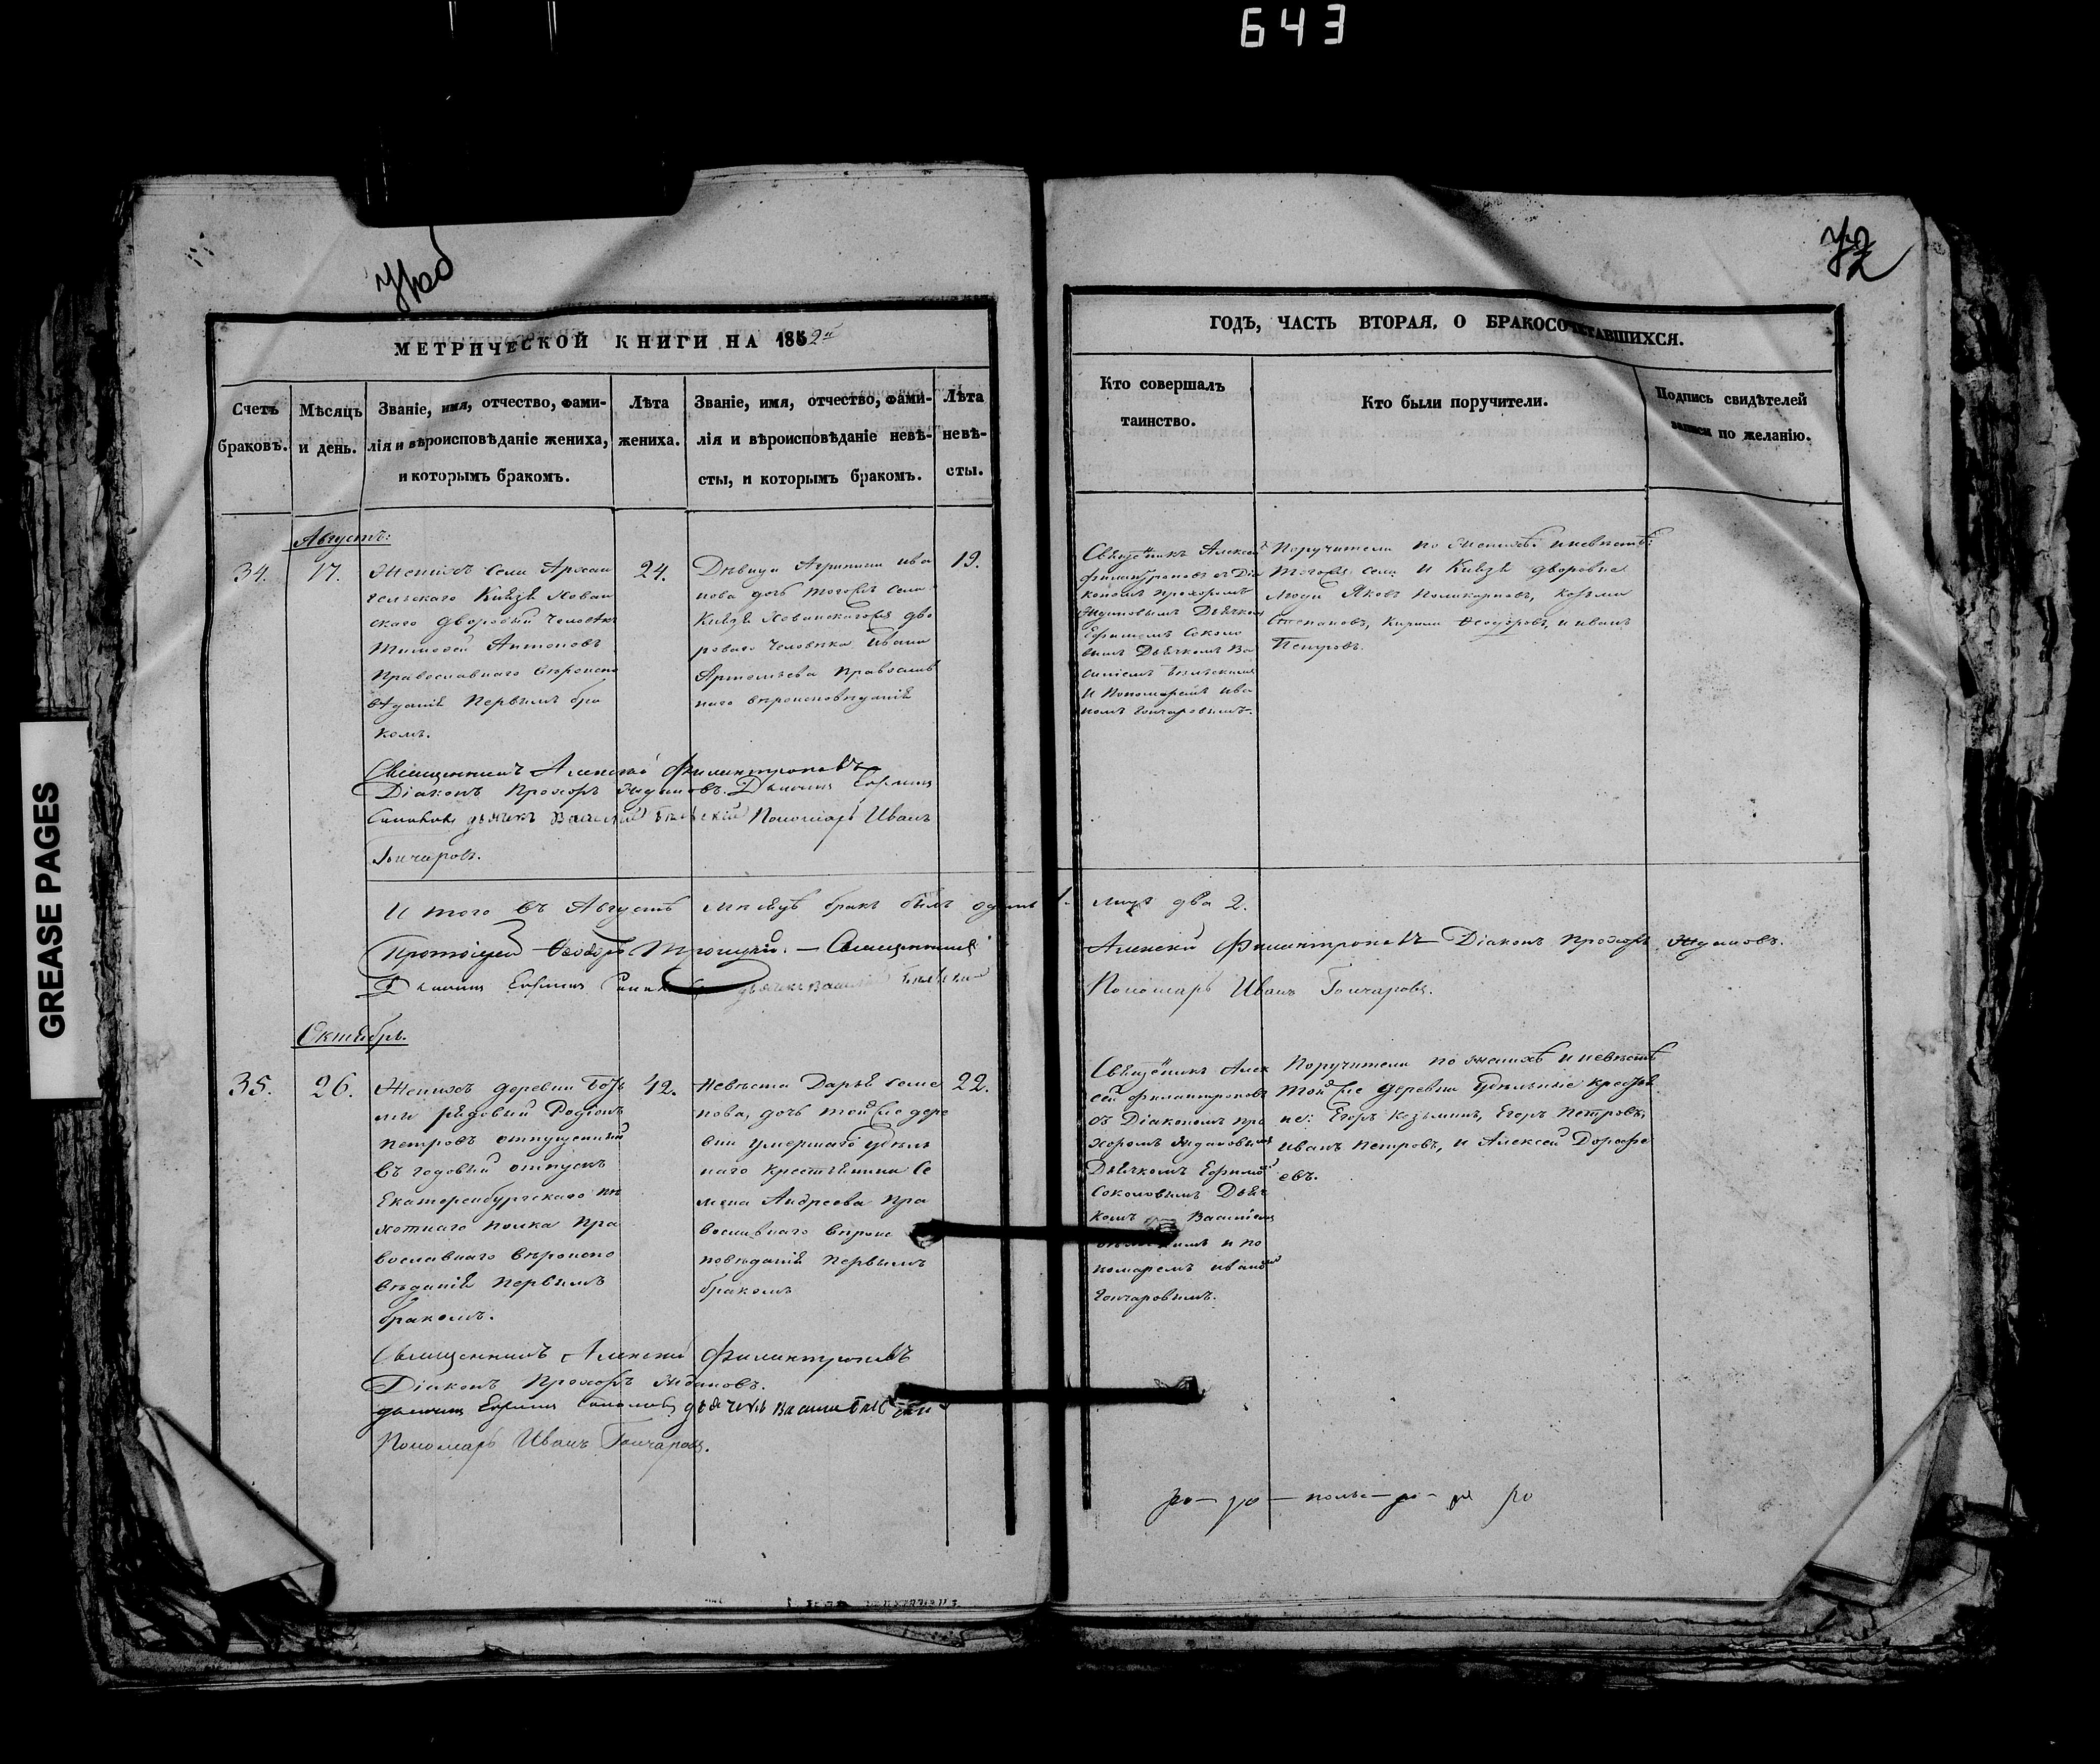 643
72
GREASE PAGES
МЕТРИЧЕСКОЙ КНИГИ НА 1852й
Счетъ браковъ.
Мѣсяцъ и день.
Званіе, имя, отчество, фами-
лія и вѣроисповѣданіе жениха,
и которымъ бракомъ.
Лѣта
жениха.
Званіе, имя, отчество, фами-
лія и вѣроисповѣданіе невѣ-
сты, и которымъ бракомъ.
Лѣта
невѣ-
сты.
Августъ:
34.
17.
Женихъ села Архан
гельскаго Князя Хован
скаго дворовый человѣкъ
Тимофей Антоновъ
православнаго вѣроиспо
вѣданія первымъ бра
комъ.
24.
Дѣвица Агрипина ива
нова дочь тогожъ села
Князя Хованскагожъ дво
роваго человѣка Ивана
Артемьева православ
наго вѣроисповѣданія
19.
Священникъ Алексей Филантроповъ
Діаконъ Прохоръ Ждановъ. Дьячекъ Ефимъ
Соколовъ дьячекъ Василій Бѣльскій Пономарь Иванъ
Гончаровъ.
И того въ Августѣ мѣсяцѣ бракъ былъ одинъ 1.
Протоіерей Ѳеодоръ Троицкій. — Священникъ
Дьячекъ Ефимъ дьячекъ Василій
Октябрь.
35.
26.
Женихъ деревни
рядовый Родіонъ
петровъ отпущенный
въ годовый отпускъ
Екатеренбургскаго пѣ
хотнаго полка пра
вославнаго вѣроиспо
вѣданія первымъ
бракомъ.
42.
Невѣста Дарья семе
нова, дочь той же дере
вни умершаго удѣль
наго крестьянина Се
мена Андреева пра
вославнаго вѣроис
повѣданія первымъ
бракомъ
22.
Священникъ Алексей Филантроповъ
Діаконъ Прохоръ Ждановъ.
дьячекъ Ефимъ Соколовъ дьячекъ Василій
Пономарь Иванъ Гончаровъ.
ГОДЪ, ЧАСТЬ ВТОРАЯ, О БРАКОСОЧЕТАВШИХСЯ.
Кто совершалъ
таинство.
Кто были поручители.
Подпись свидѣтелей
записи по желанію.
Священикъ Алексей
филантроповъ съ Діа
кономъ прохоромъ
Ждановымъ Дьячкомъ
Ефимомъ Соколо
вымъ Дьячкомъ Ва
силіемъ Бѣльскимъ
и Пономаремъ ива
номъ гончаровымъ.
Поручители по женихѣ и невѣстѣ:
тогожъ села и Князя дворовые
люди Яковъ Поликарповъ, козьма
Степановъ, Кирила Ѳеодоровъ, и иванъ
Петровъ.
лицъ два 2.
Алексей Филантроповъ Діаконъ прохоръ Ждановъ.
Пономарь Иванъ Гончаровъ.
Священикъ Алек
сей филантроповъ
съ Діакономъ про
хоромъ Ждановымъ
Дьячкомъ Ефимомъ
Соколовымъ Дьяч
комъ Василіемъ
и по
номаремъ иваномъ
гончаровымъ.
Поручители по женихѣ и невѣстѣ
той же деревни удѣльные крестья
не: Егоръ козьминъ, Егоръ Петровъ,
иванъ петровъ, и Алексей Дорофе
евъ.